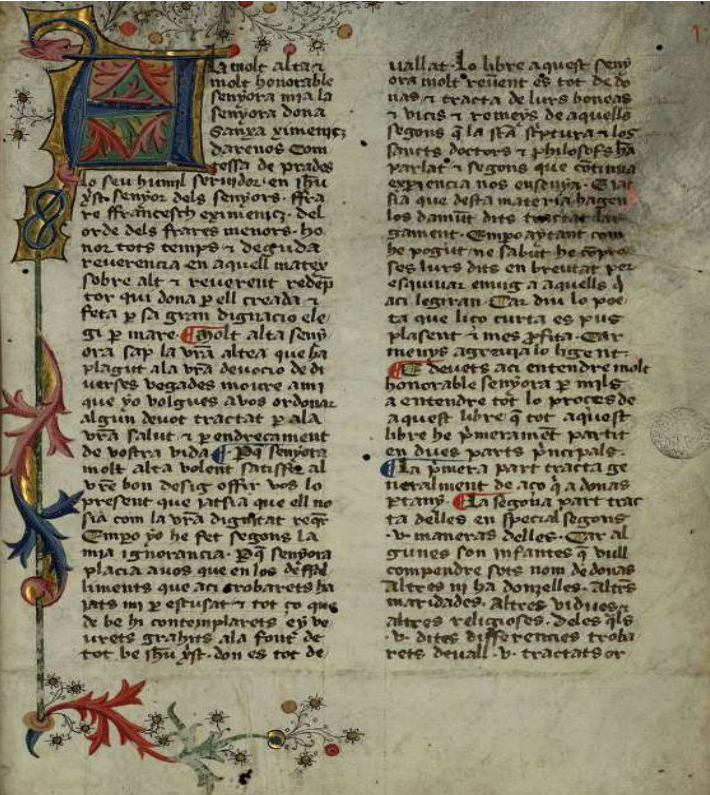 A la molt alta ⁊
molt honorable
senyora mia la
senyora dona
Sanxa ximeniç
darenos Com
tessa de prades
lo seu humil servidor en ihū
xp̄st senyor dels senyors ffra
re ffrancesch eximeniç del
orde dels frares menors ho
nor tots temps ⁊ deguda
reverencia en aquell mateix
sobre alt ⁊ reverent redēp
tor qui dona ꝑ ell creada ⁊
feta ꝑ sa gran dignacio ele
gi ꝑ mare. Molt alta seny
ora sap la vr̄a altea que ha
plagut ala vr̄a devocio de di
verses vegades moure ami
que yo volgues avos ordonar
algun devot tractat ꝑ ala
vr̄a salut ⁊ ꝑ endreçament
de vostra vida. Per q̄ senyora
molt alta volent satisffer al
vr̄e bon desig offir vos lo
present que jatsia que ell no
sia com la vr̄a dignitat reqr̄
Empo yo he fet segons la
mia ignorancia. Per q̄ senyora
placia avos que en los deffal
liments que aci trobarets ha
jats mi ꝑ escusat ⁊ tot ço que
de be hi contemplarets ey ve
urets grahits ala font de
tot be ihū xp̄st. don es tot de
vallat. Lo libre aquest seny
ora molt revent es tot de do
nas ⁊ tracta de lurs boneas
⁊ vicis ⁊ remeys de aquells
segons q̄ la sc̄a scr̄ptura ⁊ los
sancts doctors ⁊ philosofs ha
parlat ⁊ segons que cōtinua
experiencia nos ensenya. E jat
sia que desta materia hagen
los damūt dits tractat lar
gament. Empo aytant com
he pogut ne sabut he cōpre
ses lurs dits en breutat per
esquivar enuig a aquells q̄
aci legiran. Car diu lo poe
ta que liço curta es pus
plasent ⁊ mes ꝓfita. Car
menys agreuja lo ligent.
E devets aci entendre molt
honorable senyora ꝑ mils
a entendre tot lo proces de
aquest libre q̄ tot aquest
libre he p̄merament partit
en dues parts p̄ncipals.
La p̄mera part tracta ge
neralment de aço q̄ a donas
ꝑtany. La segona part trac
ta delles en special segons
.v. maneras delles. Car al
gunes son infantes q̄ vull
compendre sots nom de donas
Altres ni ha donzelles. Altr̄s
maridades. Altres vidues ⁊
altres religioses. Deles q̄ls
.v. dites differencies troba
rets devall .v. tractats or